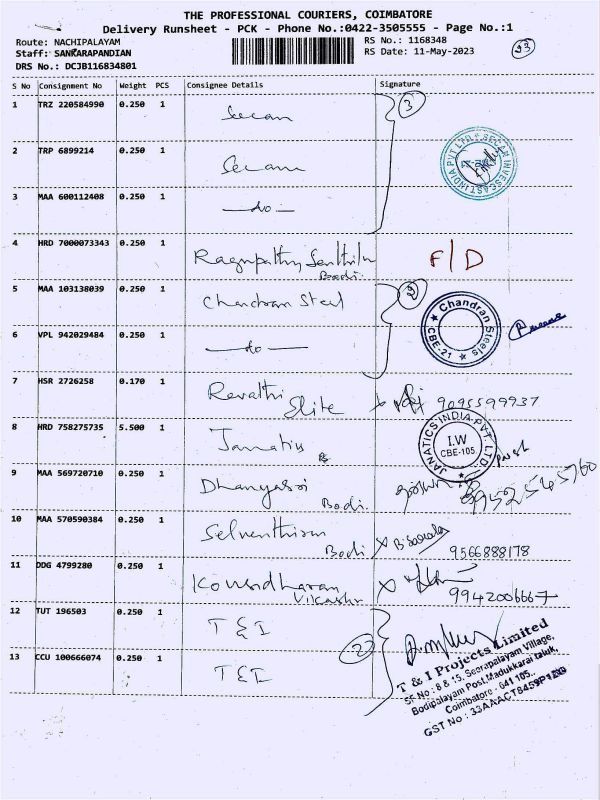 THE PROFESSIONAL COURIERS, COIMBATORE
Delivery Runsheet - PCK - Phone No.:0422-3505555 - Page No.:1
Route: NACHIPALAYAM
RS No.: 1168348
Staff: SANKARAPANDIAN
RS Date: 11-May-2023
DRS No.: DCJB116834801
S No Consignment No Weight PCS Consignee Details Signature
1 TRZ 220584990 0.250 1 Secan
3
2 TRP 6899214 0.250 1 Secan
SECAN INVESCAST INDIA PVT LTD
3 MAA 600112408 0.250 1 —do—
4 HRD 7000073343 0.250 1 Ragupathy Senthil
Bodi. F/D
5 MAA 103138039 0.250 1 Chandran Steel
2
Chandran Steels
CBE-21
6 VPL 942029484 0.250 1 —do—
7 HSR 2726258 0.170 1 Revathi
Elite 9095599937
8 HRD 758275735 5.500 1 Janatics
JANATICS INDIA PVT. LTD.
I.W
CBE-105
9 MAA 569720710 0.250 1 Dhanyasri
Bodi. 9952545760
10 MAA 570590384 0.250 1
Bodi X 9566888178
11 DDG 4799280 0.250 1
X 9942006667
12 TUT 196503 0.250 1 T & I
2
13 CCU 100666074 0.250 1 T & I
T & I Projects Limited
SF No : 8 & 15, Seerapalayam Village,
Bodipalayam Post, Madukkarai taluk,
Coimbatore - 641 105.
GST No :